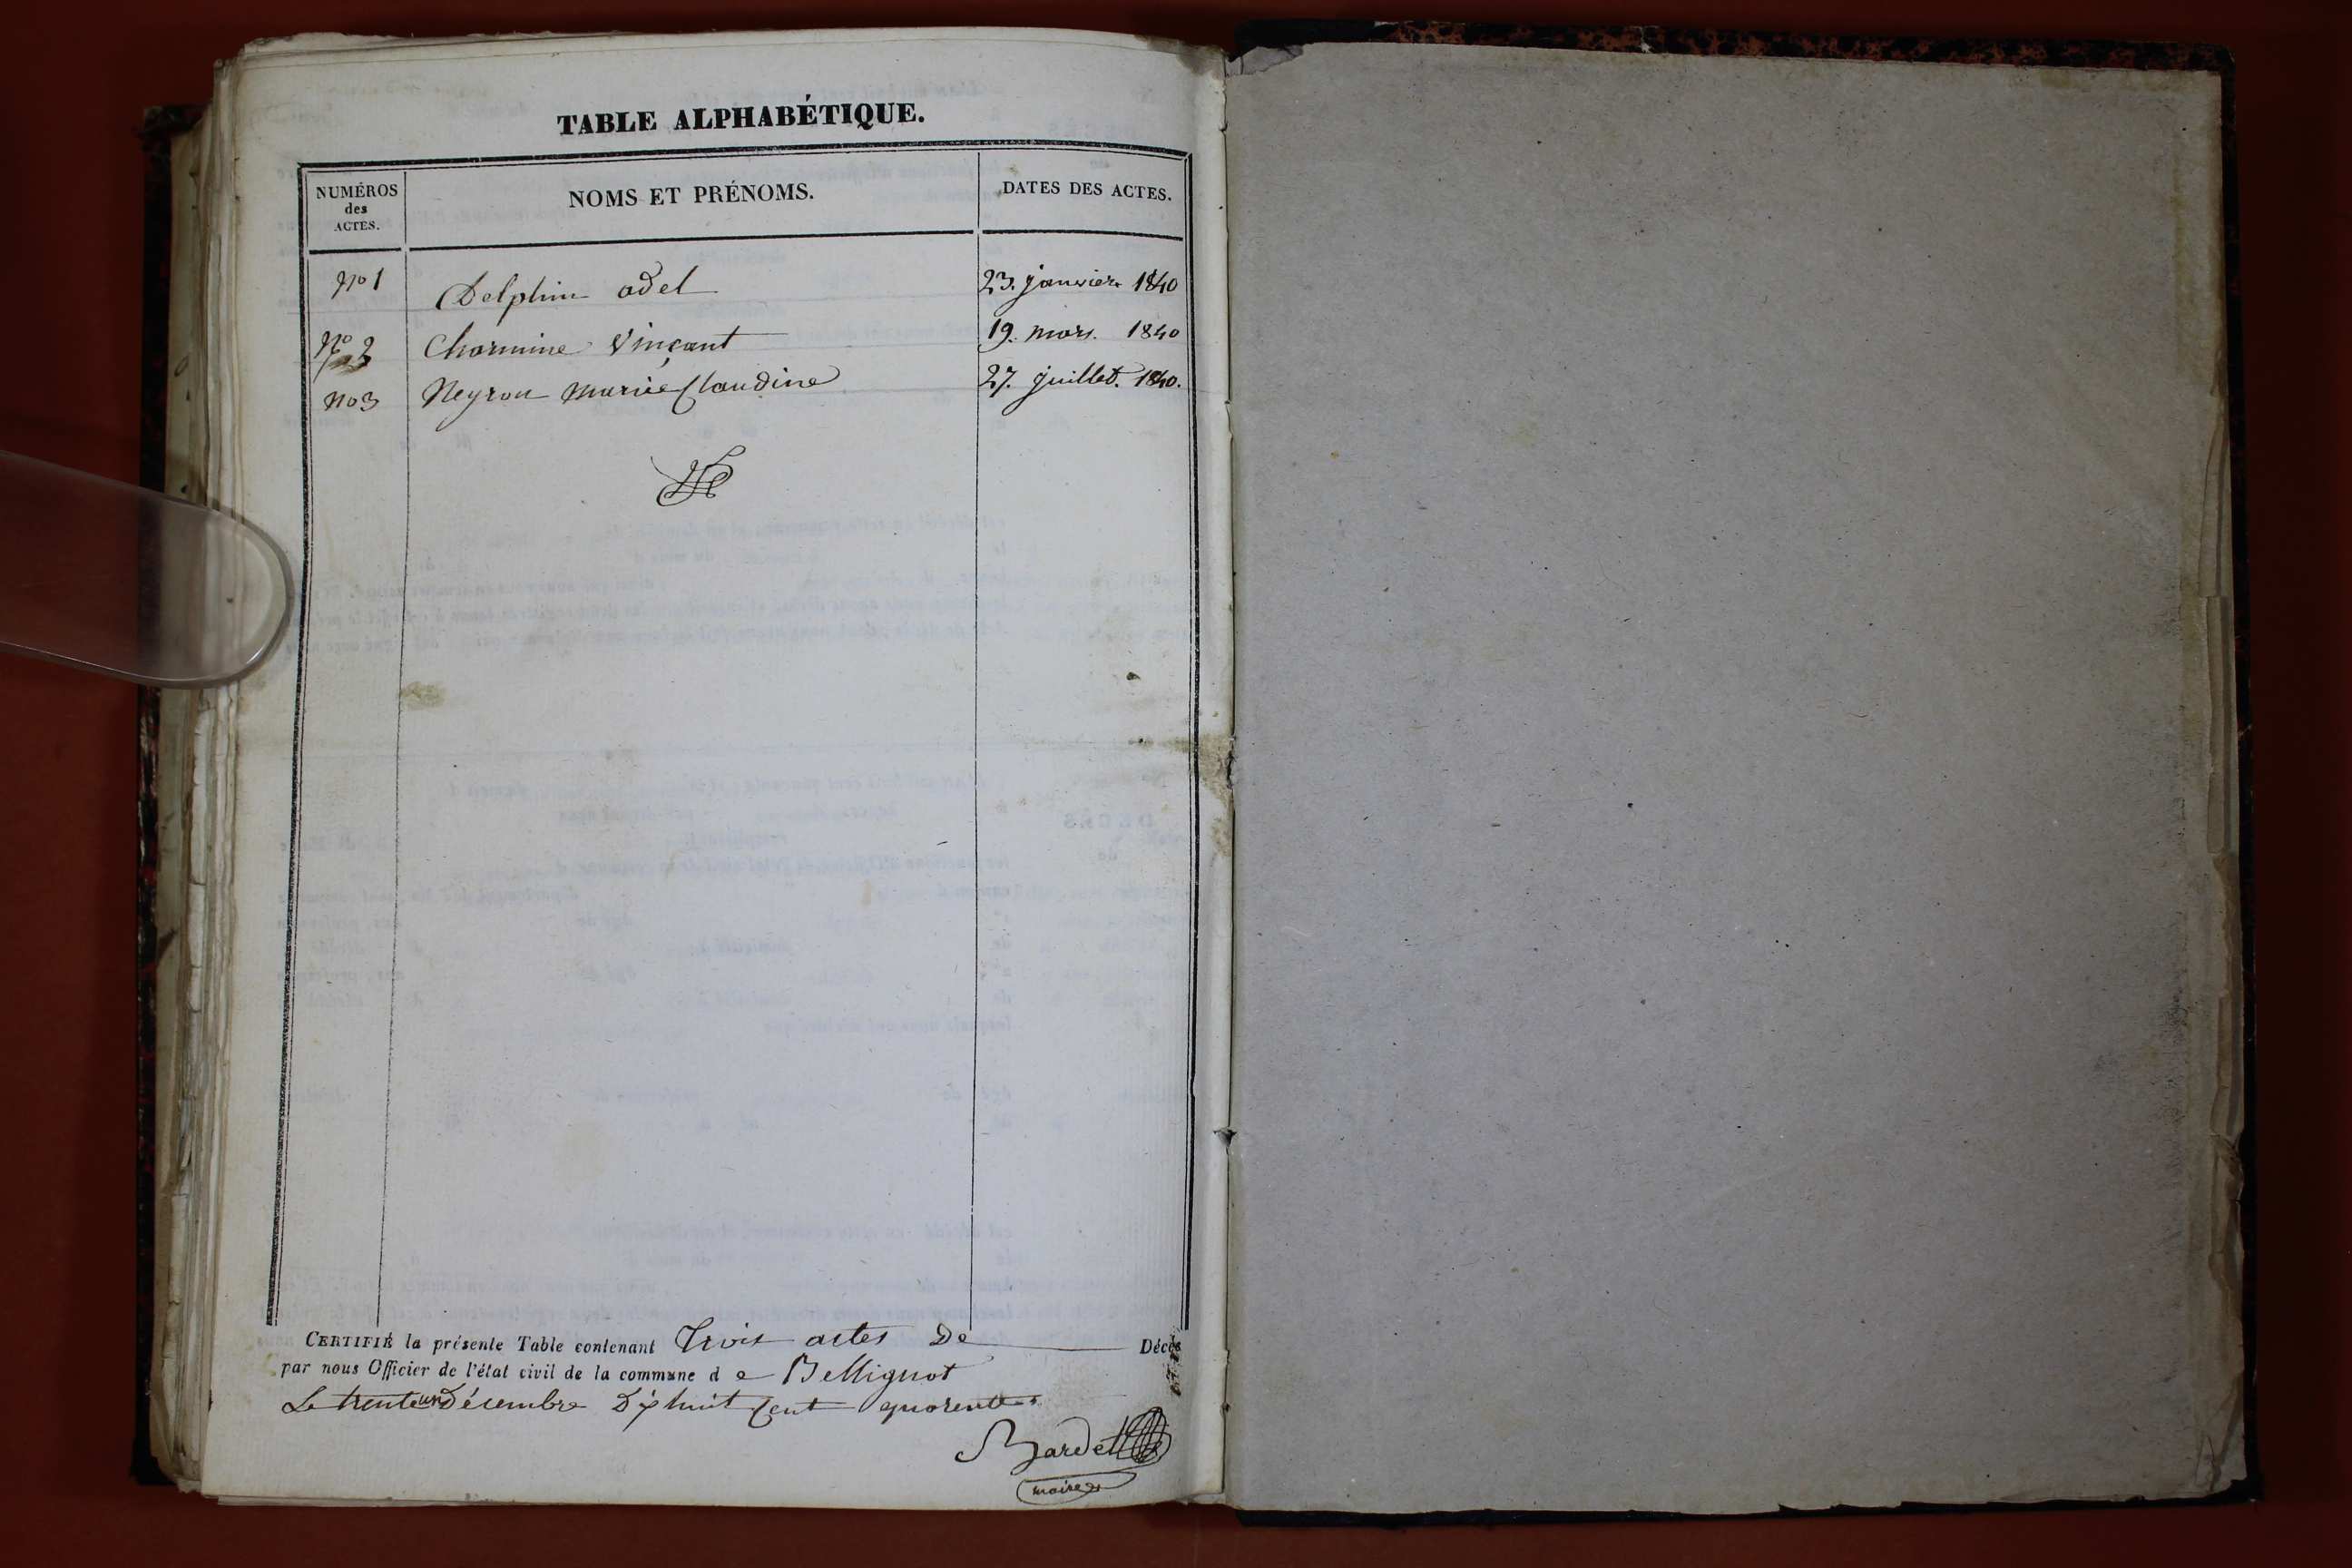 TABLE ALPHABÉTIQUE.
NUMÉROS des ACTES.
NOMS ET PRÉNOMS.
DATES DES ACTES.
No 1 Delphin adel 23. janvier 1840
No 2 Charmine Vinçant 19. mars. 1840
No 3 Neyron marie Claudine 27. juillet. 1840.
CERTIFIÉ la présente Table contenant Trois actes De Décès
par nous Officier de l'état civil de la commune d e Bellignot
Le trente un Décembre Dix huit Cent quarente
Bardet
maire